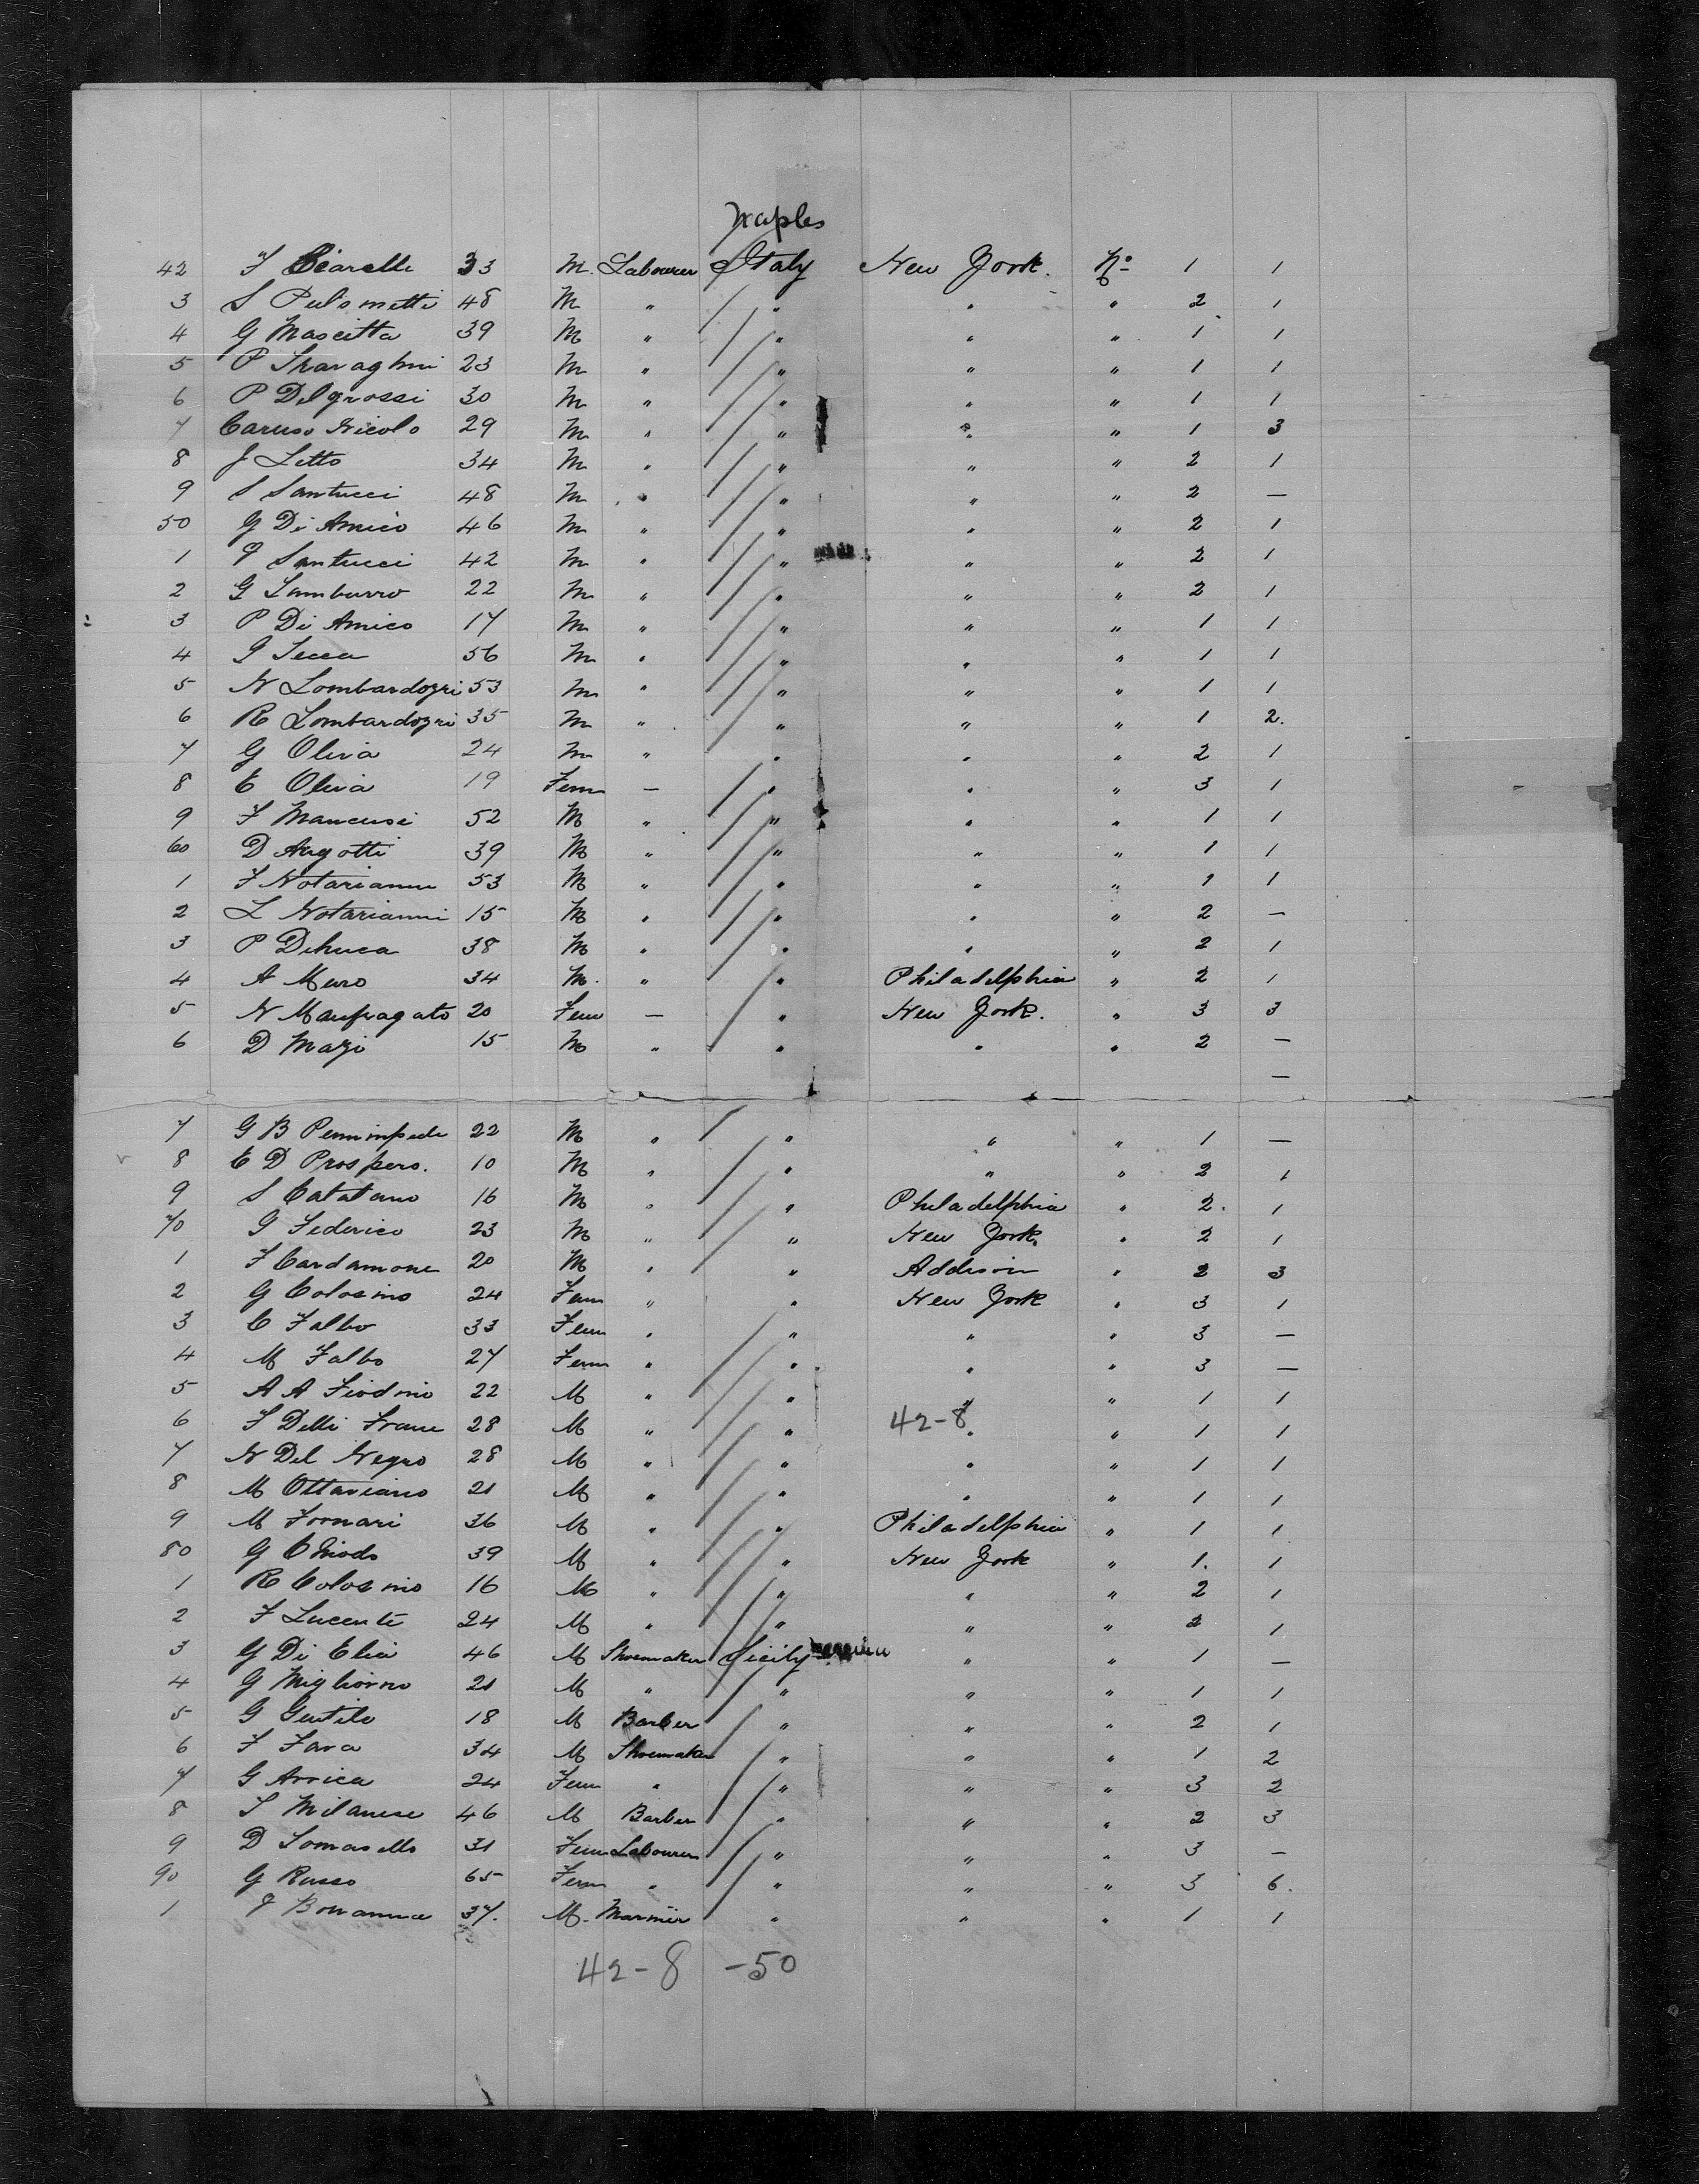 Naples
42 F Ciarelli 33 M. Labourer Italy New York. No 1 1
3 S Pulsmetti 48 M " " " " 2 1
4 G Mascitta 39 M " " " " 1 1
5 P 23 M " " " " 1 1
6 P Delgrossi 30 M " " " " 1 1
7 Caruso Nicolo 29 M " " " " 1 3
8 J Litto 34 M " " " " 2 1
9 S Santucci 48 M " " " " 2 —
50 G Di Amico 46 M " " " " 2 1
1 P Santucci 42 M " " " " 2 1
2 G 22 M " " " " 2 1
3 P Di Amico 17 M " " " " 1 1
4 G Secca 56 M " " " " 1 1
5 N Lombardozzi 53 M " " " " 1 1
6 R Lombardozzi 35 M " " " " 1 2.
7 G Oliva 24 M " " " " 2 1
8 C Oliva 19 Fem — " " " 3 1
9 F Mancusi 52 M " " " " 1 1
60 D Argotti 39 M " " " " 1 1
1 F Notarianni 53 M " " " " 1 1
2 L Notarianni 15 M " " " " 2 —
3 P Deluca 38 M " " " " 2 1
4 A Muro 34 M. " " Philadelphia " 2 1
5 N Maufragato 20 Fem — " New York. " 3 3
6 D Mazi 15 M " " " " 2 —
—
7 G B Penninpede 22 M " " " " 1 —
8 C D Prospero. 10 M " " " " 2 1
9 S Catatano 16 M " " Philadelphia " 2. 1
70 G Federico 23 M " " New York. " 2 1
1 F Cardamone 20 M " " Addison " 2 3
2 G Colosino 24 Fem " " New York " 3 1
3 C Falbo 33 Fem " " " " 3 —
4 M Falbo 27 Fem " " " " 3 —
5 A A 22 M " " " " 1 1
42-8
6 F Delli Franc 28 M " " " " 1 1
7 N Del Negro 28 M " " " " 1 1
8 M Ottaviano 21 M " " " " 1 1
9 M Fornari 36 M " " Philadelphia " 1 1
80 G Chiodo 39 M " " New York " 1. 1
1 R Colosino 16 M " " " " 2 1
2 F Lucente 24 M " " " " 2 1
3 G Di Elia 46 M Shoemaker Sicily " " 1 —
4 G Migliorno 21 M " " " " 1 1
5 G Gentile 18 M Barber " " " 2 1
6 F Fava 34 M Shoemaker " " " 1 2
7 G Arrica 24 Fem " " " " 3 2
8 S Milanese 46 M Barber " " " 2 3
9 D Tomasello 31 Fem Labourer " " " 3 —
90 G Russo 65 Fem " " " " 3 6.
1 37. M. " " " 1 1
42-8 -50